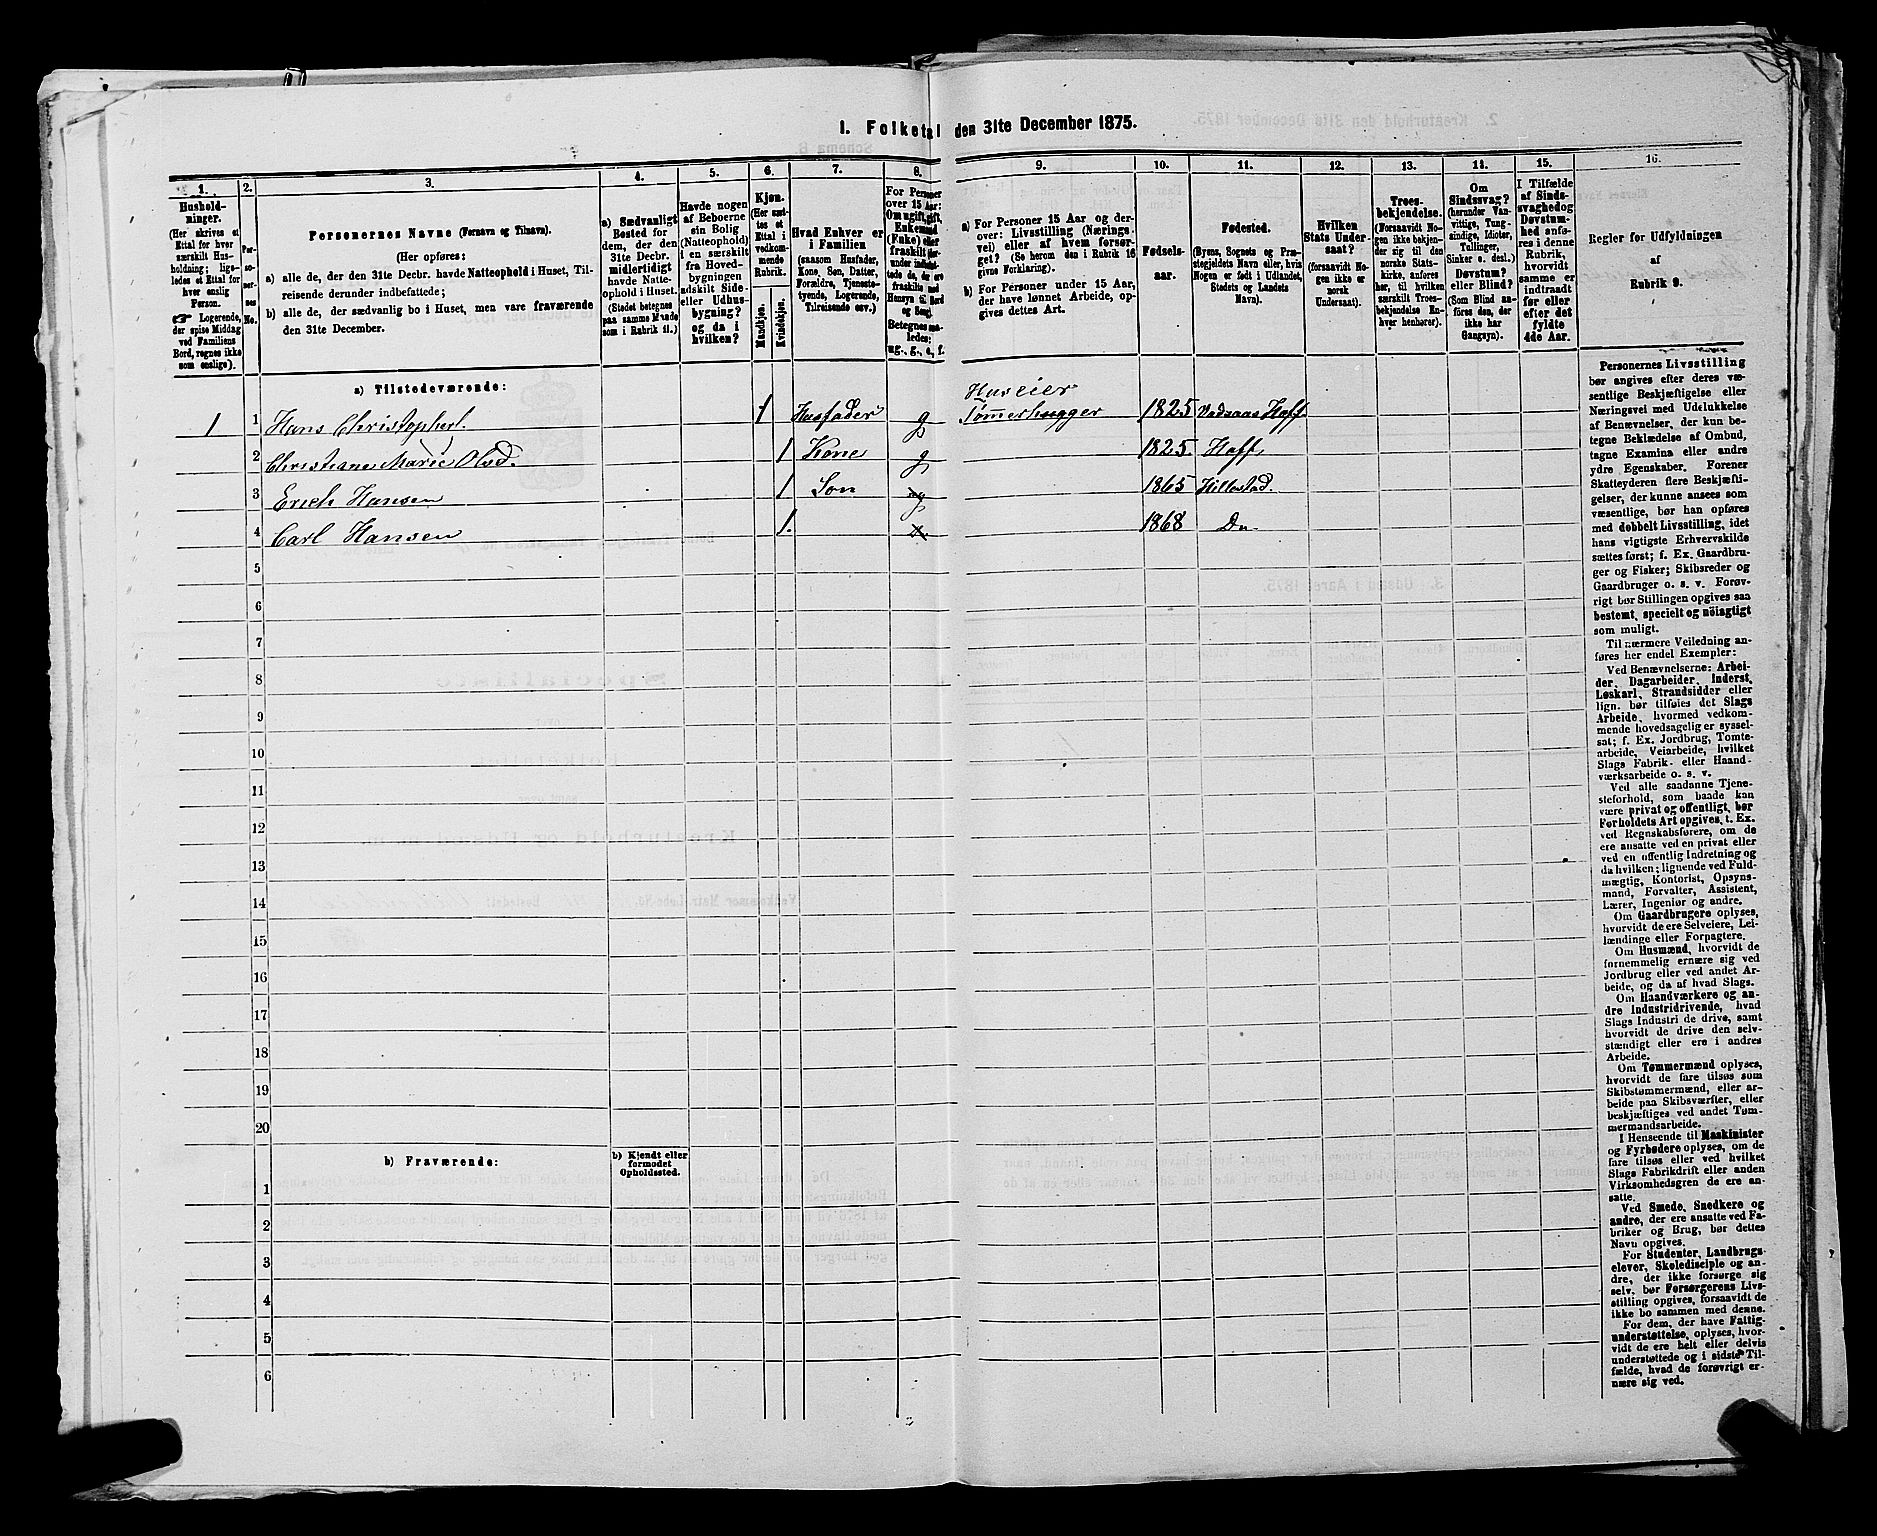 I. Folketal den 31te December 1875.
1. 2. 3. 4. 5. 6. 7. 8. 9. 10. 11. 12. 13. 14. 15. 16.
Hushold-
ninger.
(Her skrives et
Ettal for hver
særskilt Hus-
holdning; lige-
ledes et Ettal for
hver enslig
Person.
☞ Logerende,
der spise Middag
ved Familiens
Bord, regnes ikke
som enslige).
Per-
so-
ner-
nes
No.
Personernes Navne (Fornavn og Tilnavn).
(Her opføres:
a) alle de, der den 31te Decbr. havde Natteophold i Huset, Til-
reisende derunder indbefattede;
b) alle de, der sædvanlig bo i Huset, men vare fraværende
den 31te December.
a) Sædvanligt
Bosted for
dem, der den
31te Decbr.
midlertidigt
havde Natte-
ophold i Huset.
(Stedet betegnes
paa samme Maade
som i Rubrik 11.)
Havde nogen
af Beboerne
sin Bolig
(Natteophold)
i en særskilt
fra Hoved-
bygningen
adskilt Side-
eller Udhus-
bygning?
og da i
hvilken?
Kjøn.
(Her sæt-
tes et
Ettal i
vedkom-
mende
Rubrik.
Mandkjøn.
Kvindekjøn.
Hvad Enhver er
i Familien
(saasom Husfader,
Kone, Søn, Datter,
Forældre, Tjeneste-
tyende, Logerende,
Tilreisende osv.)
For Personer
over 15 Aar:
Om ugift, gift,
Enkemand
(Enke) eller
fraskilt
Betegnes saa-
ledes:
ug., g., e., f.
a) For Personer 15 Aar og der-
over: Livsstilling (Nærings-
vei) eller af hvem forsør-
get? (Se herom den i Rubrik 16
givne Forklaring).
b) For Personer under 15 Aar,
der have lønnet Arbeide, op-
gives dettes Art.
Fødsels-
aar.
Fødested.
(Byens, Sognets og Præ-
stegjeldets Navn eller, hvis
Nogen er født i Udlandet,
Stedets og Landets
Navn).
Hvilken
Stats Under-
saat?
(forsaavidt No-
gen ikke er
norsk
Undersaat).
Troes-
bekjendelse.
(Forsaavidt No-
gen ikke bekjen-
der sig til den
norske Stats-
kirke, anføres
her, til hvilken
særskilt Troes-
bekjendelse En-
hver henhører).
Om
Sindssvag?
(herunder Van-
vittige, Tung-
sindige, Idioter,
Tullinger,
Sinker o. desl.)
Døvstum?
eller Blind?
(Som Blind an-
føres den, der
ikke har
Gangsyn).
I Tilfælde
af Sinds-
svaghed og
Døvstum-
hed anfø-
res i denne
Rubrik,
hvorvidt
samme er
indtraadt
før eller
efter det
fyldte
4de Aar.
Regler for Udfyldningen
af
Rubrik 9.
a) Tilstedeværende:
Huseier
1 1 Hans Christophers. 1 Husfader g Tømmerhugger 1825 Vadsaas Hoff
2 Christiane Marie Olsd. 1 Kone g 1825. Hoff
3 Erich Hansen 1 Søn 1865 Hillestad.
4 Carl Hansen 1. 1868 Do
5
6
7
8
9
10
11
12
13
14
15
16
17
18
19
20
b) Fraværende:
b) Kjendt eller
formodet
Opholdssted.
1
2
3
4
5
6
Personernes Livsstilling
bør angives efter deres væ-
sentlige Beskjæftigelse eller
Næringsvei med Udelukkelse
af Benævnelser, der kun be-
tegne Beklædelse af Ombud,
tagne Examina eller andre
ydre Egenskaber. Forener
Skatteyderen flere Beskjæfti-
gelser, der kunne ansees som
væsentlige, bør han opføres
med dobbelt Livsstilling, idet
hans vigtigste Erhvervskilde
sættes først; f. Ex. Gaardbru-
ger og Fisker; Skibsreder og
Gaardbruger o. s. v. Forøv-
rigt bør Stillingen opgives saa
bestemt, specielt og nöiagtigt
som muligt.
Til nærmere Veiledning an-
føres her endel Exempler:
Ved Benævnelserne: Arbei-
der, Dagarbeider, Inderst,
Løskarl, Strandsidder eller
lign. bør tilføies det Slags
Arbeide, hvormed vedkom-
mende hovedsagelig er syssel-
sat; f. Ex. Jordbrug, Tomte-
arbeide, Veiarbeide, hvilket
Slags Fabrik- eller Haand-
værksarbeide o. s. v.
Ved alle saadanne Tjene-
steforhold, som baade kan
være privat og offentligt, bør
Forholdets Art opgives, t. Ex.
ved Regnskabsførere, om de
ere ansatte ved en privat eller
ved en offentlig Indretning og
da hvilken; lignende ved Fuld-
mægtig, Kontorist, Opsyns-
mand, Forvalter, Assistent,
Lærer, Ingeniør og andre.
Om Gaardbrugere oplyses,
hvorvidt de ere Selveiere, Lei-
lændinge eller Forpagtere.
Om Husmænd, hvorvidt de
fornemmelig ernære sig ved
Jordbrug eller ved andet Ar-
beide, og da af hvad Slags.
Om Haandværkere og an-
dre Industridrivende, hvad
Slags Industri de drive, samt
hvorvidt de drive den selv-
stændigt eller ere i andres
Arbeide.
Om Tømmermænd oplyses,
hvorvidt de fare tilsøs som
Skibstømmermænd, eller ar-
beide paa Skibsværfter, eller
beskjæftiges ved andet Tøm-
mermandsarbeide.
I Henseende til Maskinister
og Fyrbødere oplyses, om de
fare tilsøs eller ved hvilket
Slags Fabrikdrift eller anden
Virksomhedsgren de ere an-
satte.
Ved Smede, Snedkere og
andre, der ere ansatte ved Fa-
briker og Brug, bør dettes
Navn opgives.
For Studenter, Landbrugs-
elever, Skoledisciple og an-
dre, der ikke forsørge sig
selv, bør Forsørgerens Livs-
stilling opgives, forsaavidt de
ikke bo sammen med denne.
For dem, der have Fattig-
understøttelse, oplyses, hvor-
vidt de ere helt eller delvis
understøttede og i sidste Til-
fælde, hvad de forøvrigt er-
nære sig ved.